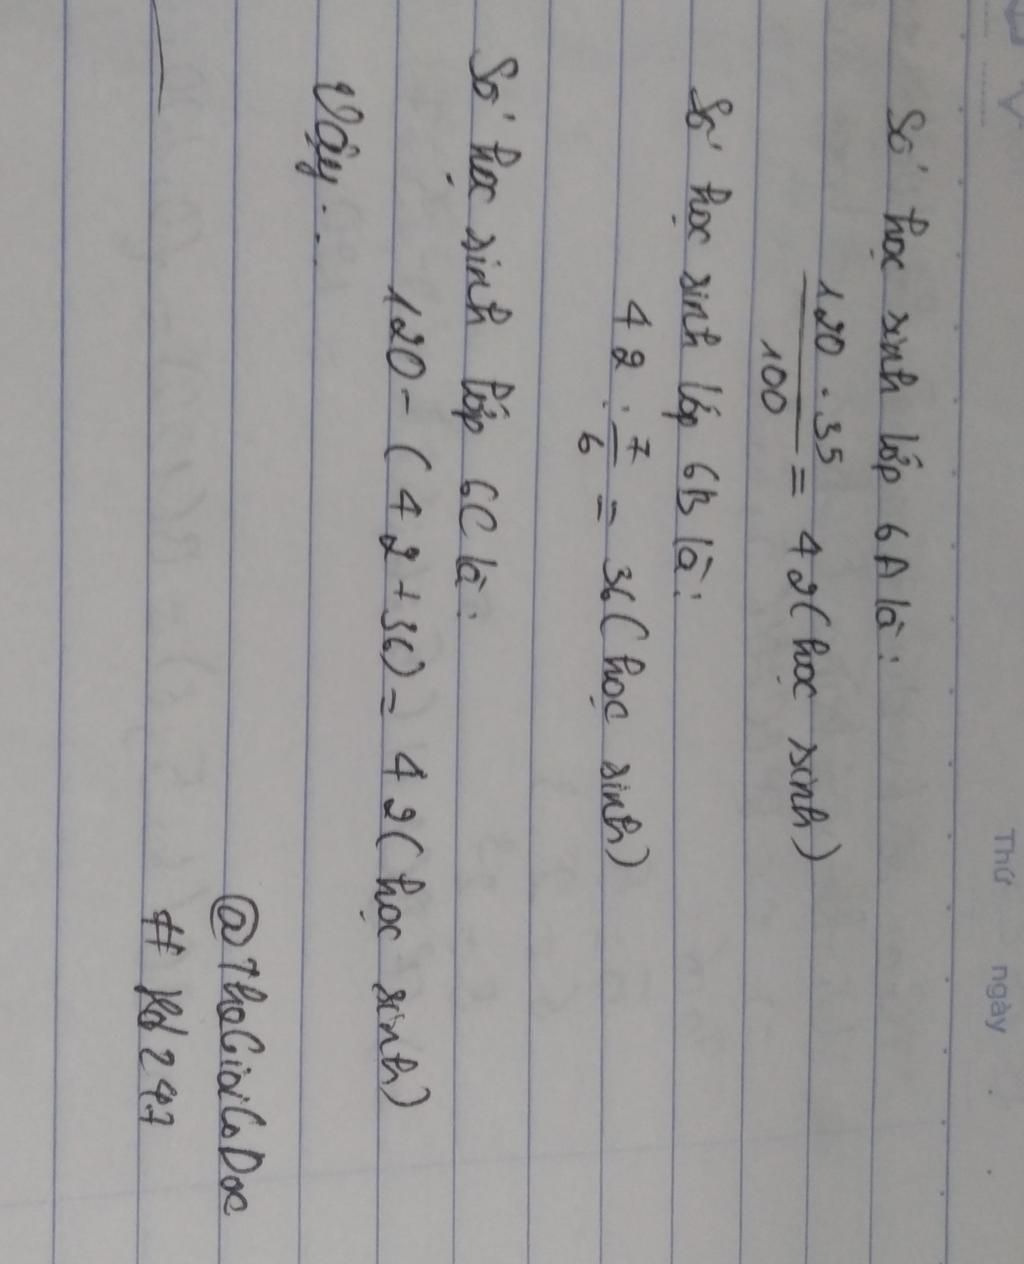 Thứ ngày
Số học sinh lớp 6A là:
120 . 35
100
= 42 (học sinh)
Số học sinh lớp 6B là:
42 : 7/6 = 36 (học sinh)
Số học sinh lớp 6C là:
120 - (42 + 36) = 42 (học sinh)
Vậy...
@TheGioiCoDoc
# 247